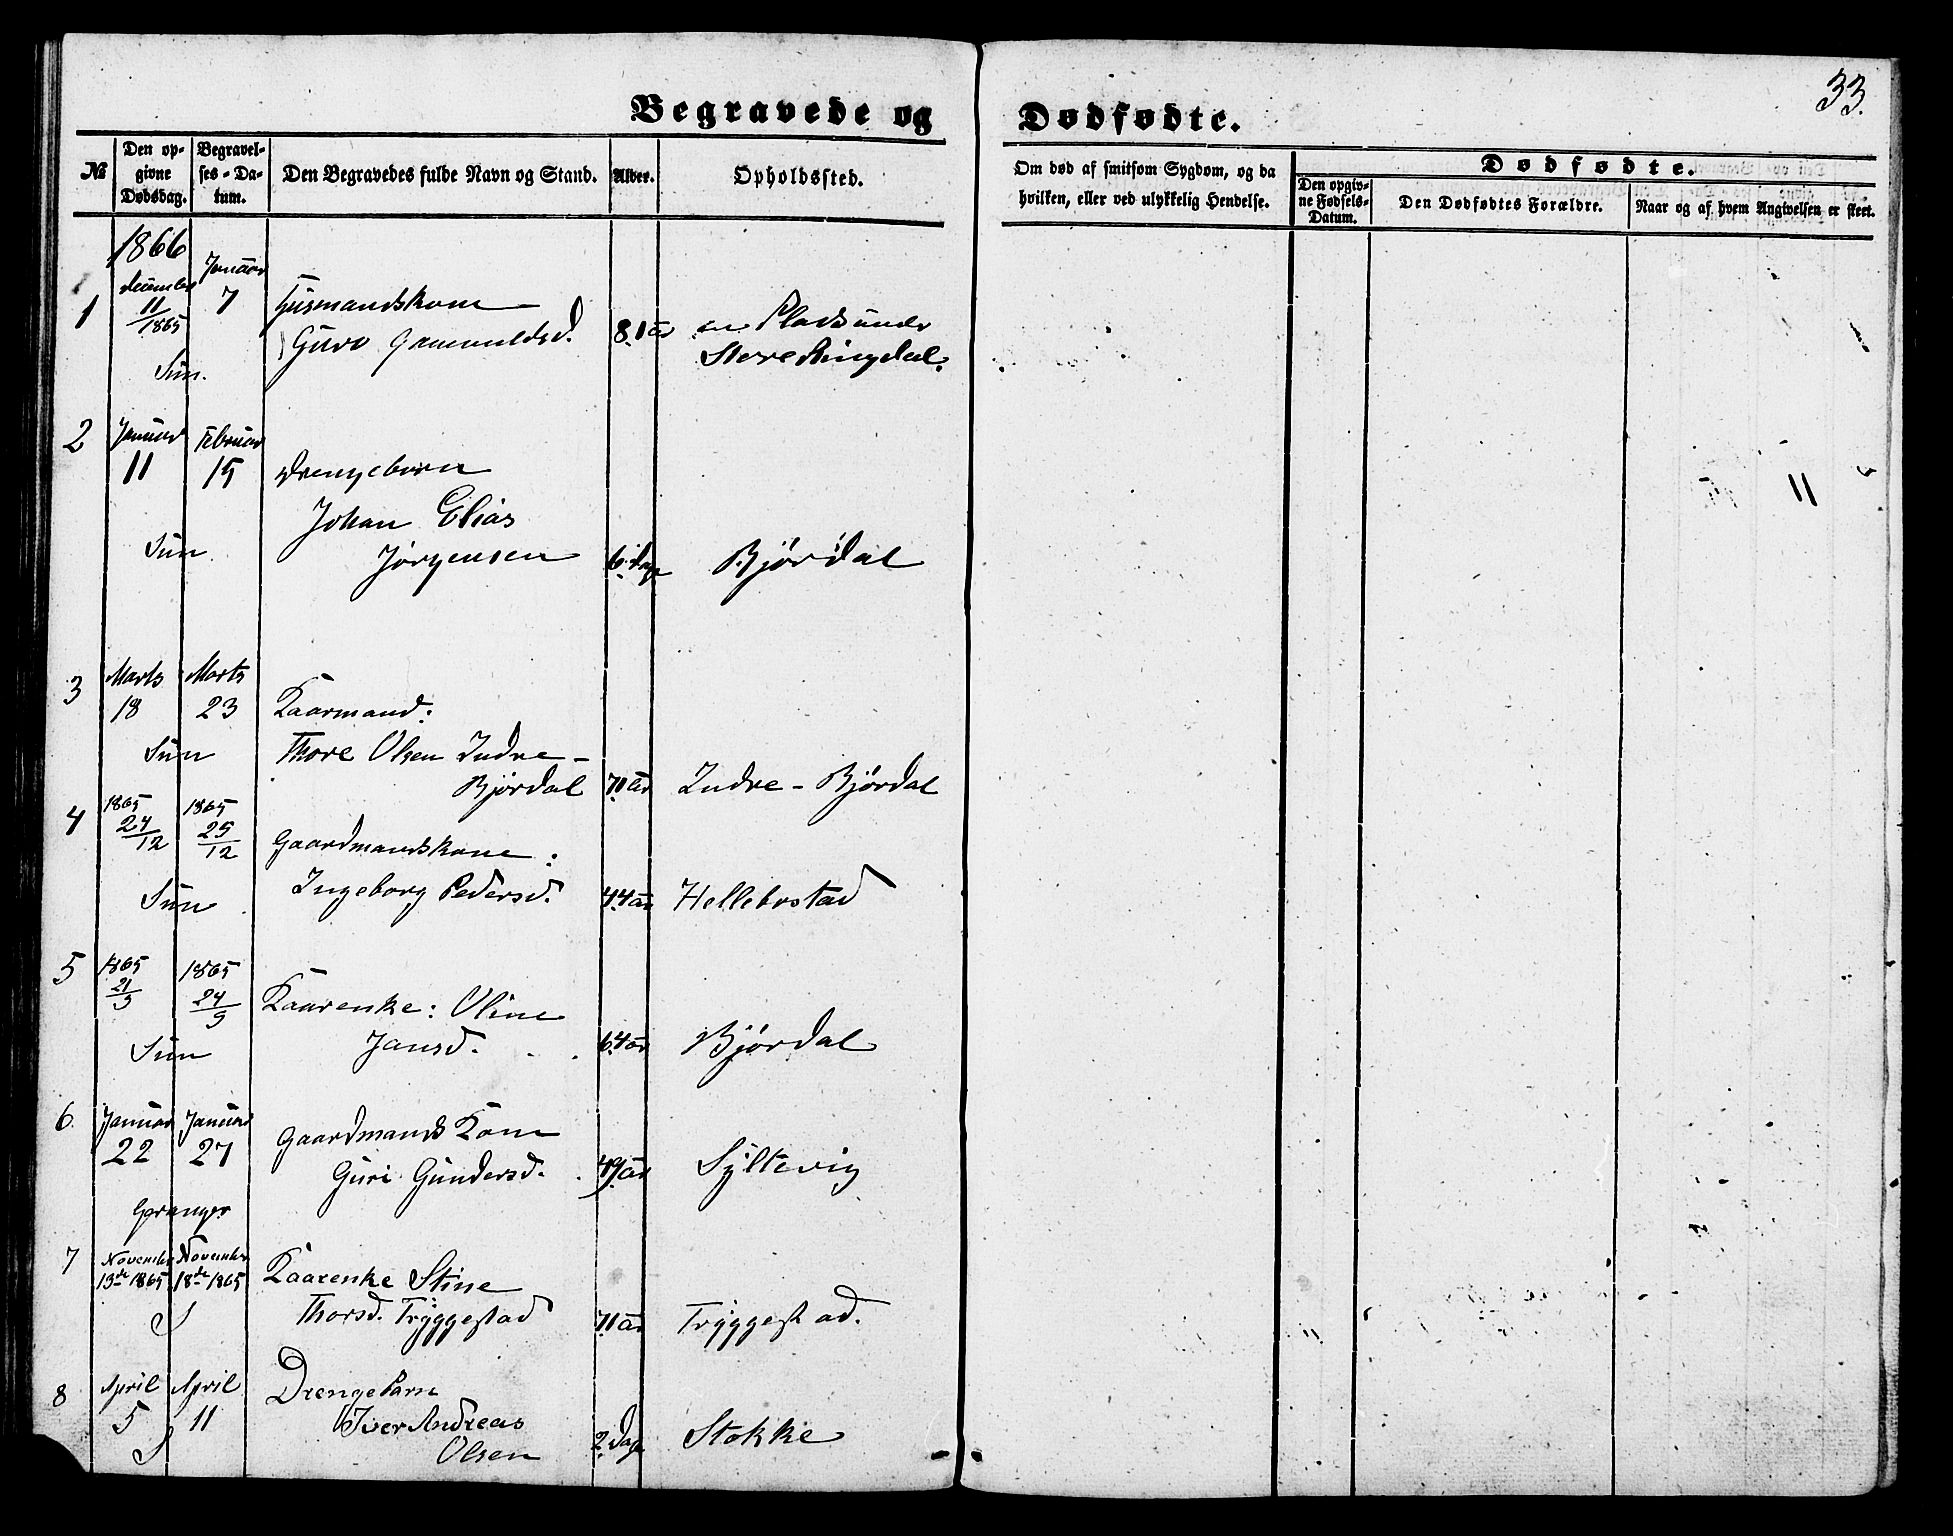 33.
Begravede og Dødfødte.
№
Den opgivne Dødsdag.
Begravelses-Datum.
Den Begravedes fulde Navn og Stand.
Alder.
Opholdssted.
Om død af smitsom Sygdom, og da hvilken, eller ved ulykkelig Hendelse.
Dødfødte.
Den opgivne Fødsels-Datum.
Den Dødfødtes Forældre.
Naar og af hvem Angivelsen er skeet.
1866
1 December 11/1865 Januar 7 Husmandskone
Guro 81 aar en Plads under
Store Ringdal.
Sun.
2 Januar 11 Februar 15 Drengebarn
Johan Elias
Sun Jørgensen 6 dage Bjørdal
3 Marts 18 Marts 23 Kaarmand:
Sun Thore Olsen Indre-
Bjørdal 70 aar Indre-Bjørdal
4 1865 24/12 1865 25/12 Gaardmandskone:
Sun Ingeborg Pedersd. 44 aar Hellebostad
5 1865 21/9 1865 24/9 Kaarenke: Oline
Sun Jansd. 64 aar Bjørdal
6. Januar 22 Januar 27 Gaardmands Kone
Guri Gundersd. 49 aar Syltevig
Geranger
7 November 13de 1865 November 18de 1865 Kaarenke Stine
S Thorsd. Tryggestad 71 aar Tryggestad.
8 April 5 April 11 Drengebarn
Iver Andreas
S Olsen 2 dage Stokke